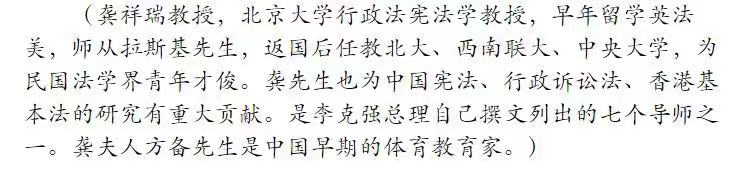 （龚祥瑞教授，北京大学行政法宪法学教授，早年留学英法
美，师从拉斯基先生，返国后任教北大、西南联大、中央大学，为
民国法学界青年才俊。龚先生也为中国宪法、行政诉讼法、香港基
本法的研究有重大贡献。是李克强总理自己撰文列出的七个导师之
一。龚夫人方备先生是中国早期的体育教育家。）